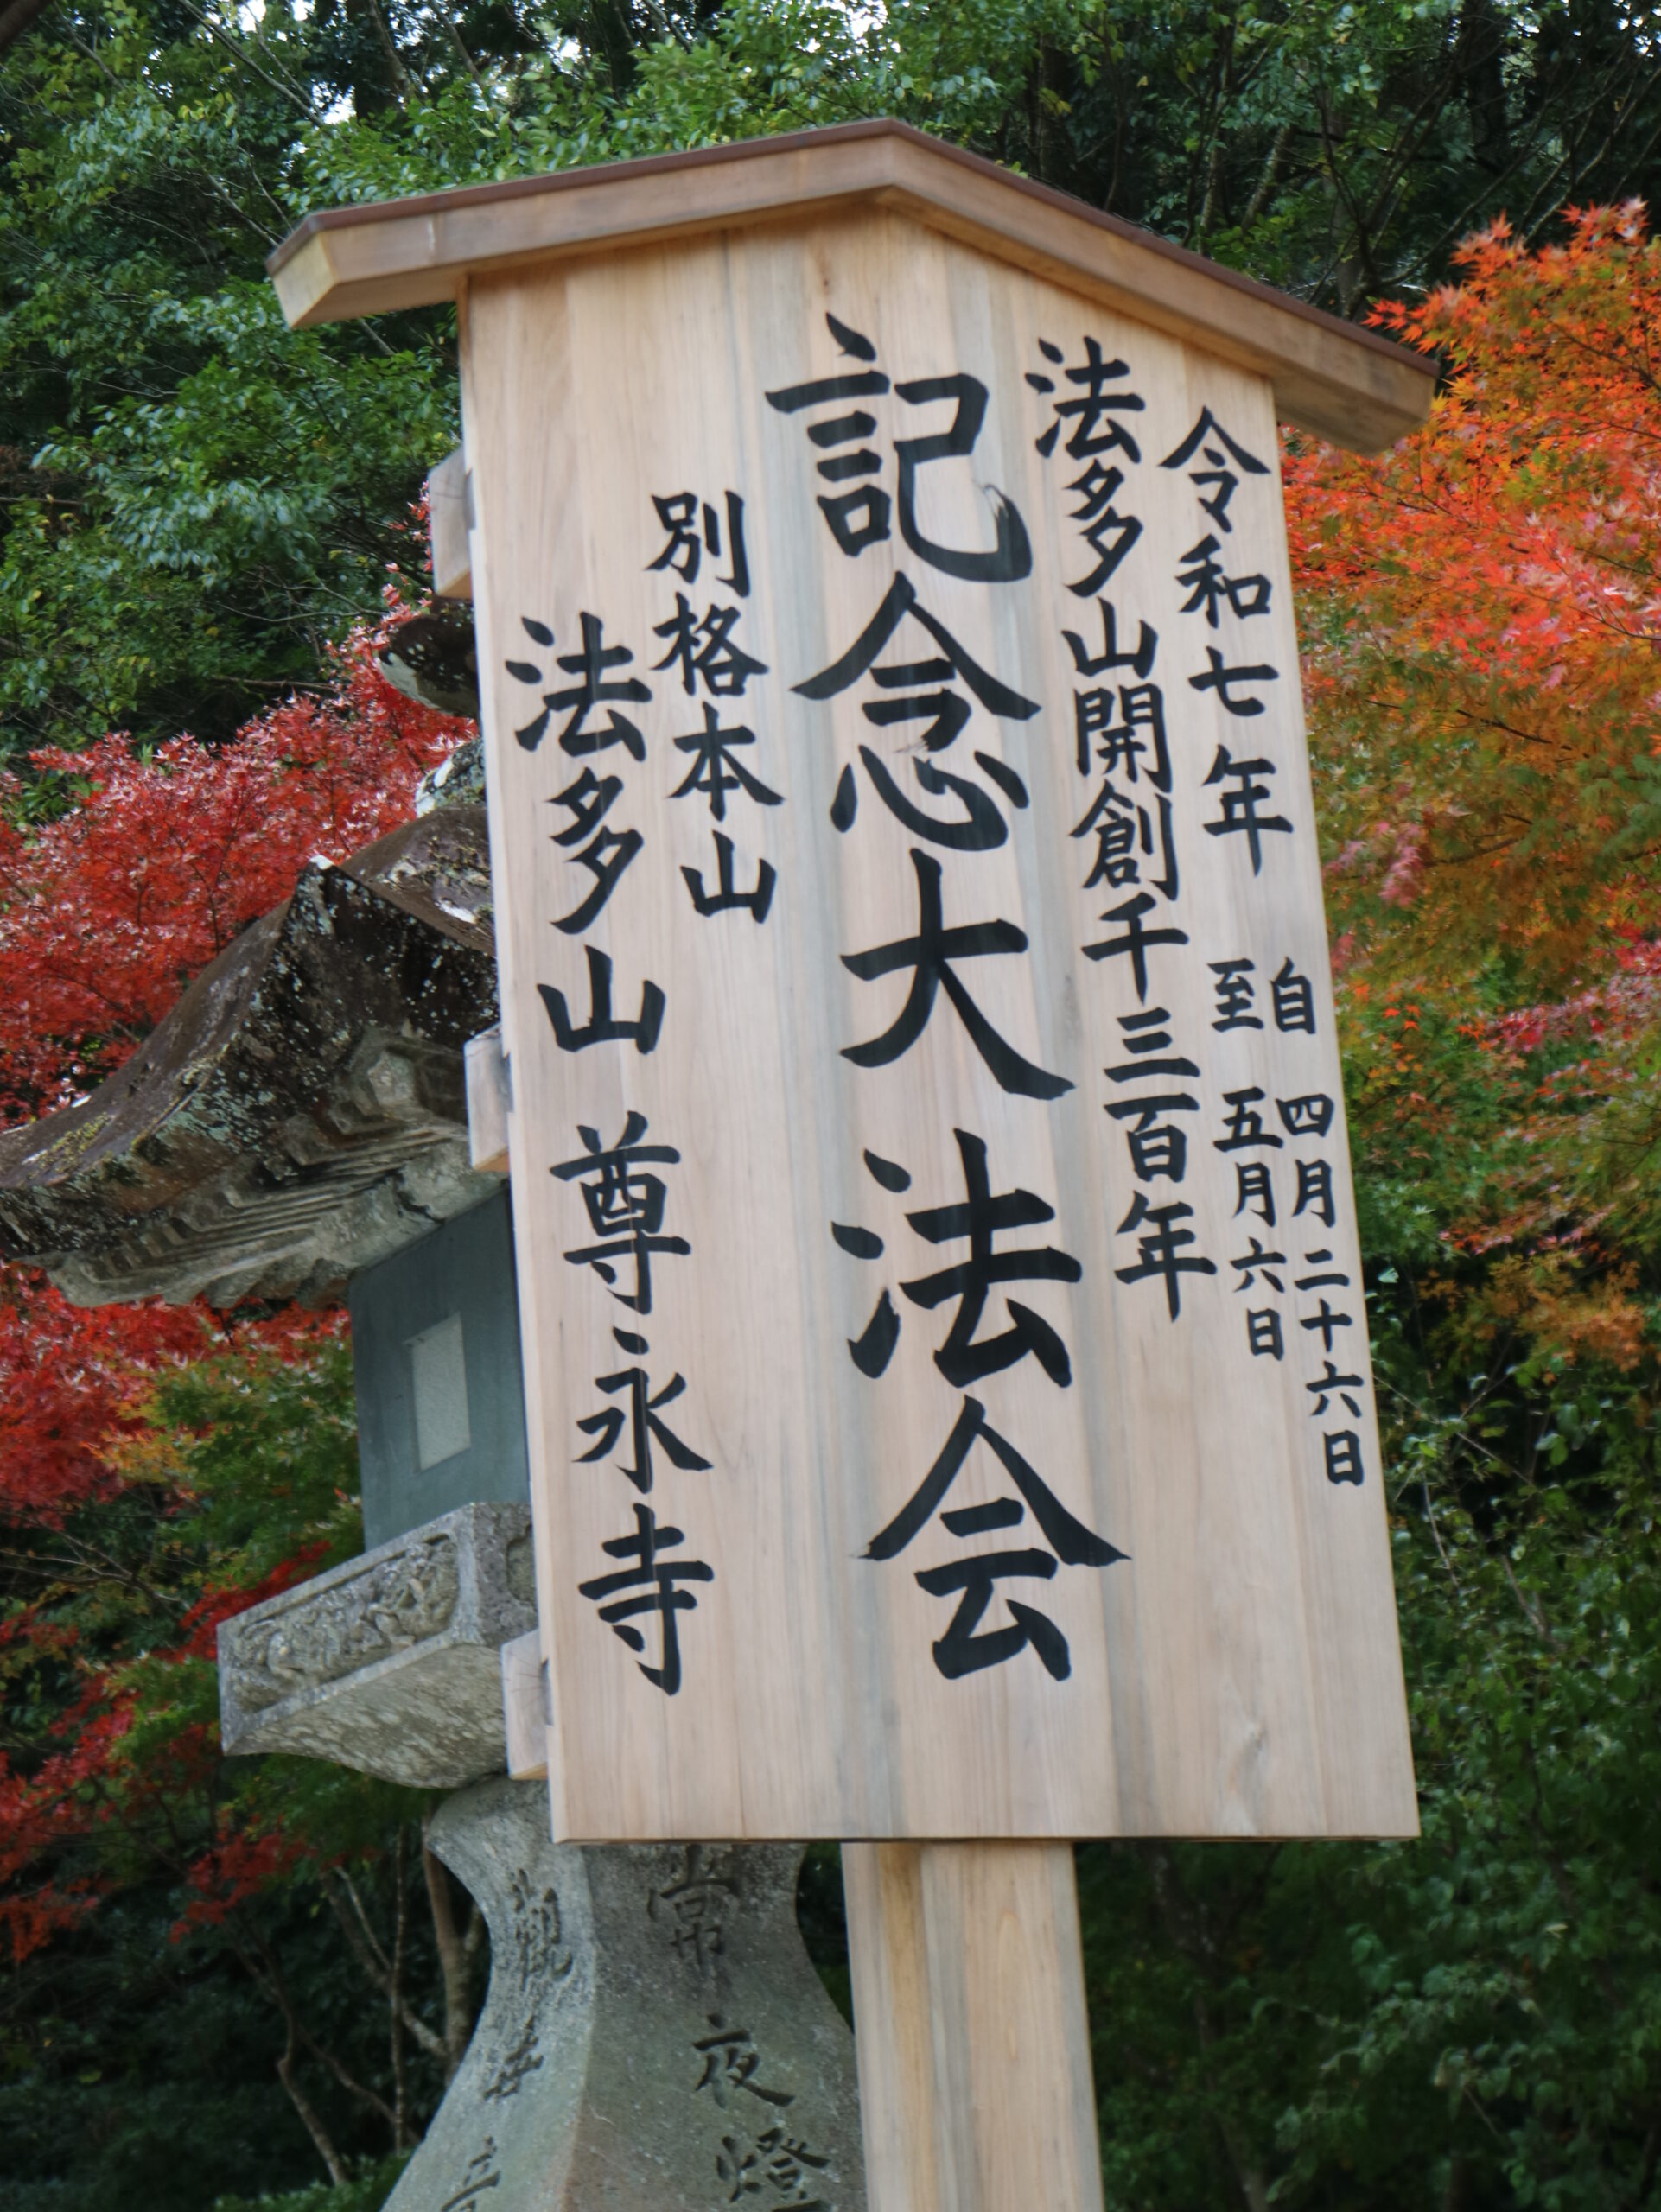 令和七年 自 四月二十六日
至 五月六日
法多山開創千三百年
記念大法会
別格本山
法多山 尊永寺
常夜燈
觀世音